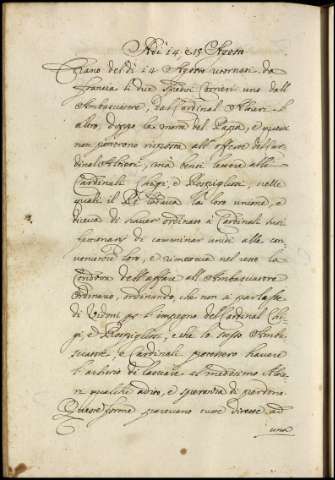 Adi 14 e 15 Agosto
Erano del dì 14 Agosto ritornati da
Francia li due Corrieri uno dell
Ambasciatore, dal Cardinal Altieri l
altro, doppo la morte del Papa, e questi
non portorono risposta all offerte del Car
dinal Altieri, mà bensì lettere alli
Cardinali Chigi, e Rospigliosi, nelle
quali il Rè lodava la loro unione, e
diceva di haver ordinato a Cardinali suoi
di caminar uniti alla con
loro, e rimetteva nel resto la
condotta dell affare all Ambasciatore
ordinario, ordinando, che non si parlasse
di Vidoni per l impegno del Cardinal Chi
gi, e Rospigliosi, e che lo stesso Amba
sciatore, e Cardinali potessero havere
l arbitrio di lasciare al medesimo Altie
ri qualche adito, e speranza di perdono
Queste forme parevano tutte dirette ad
una